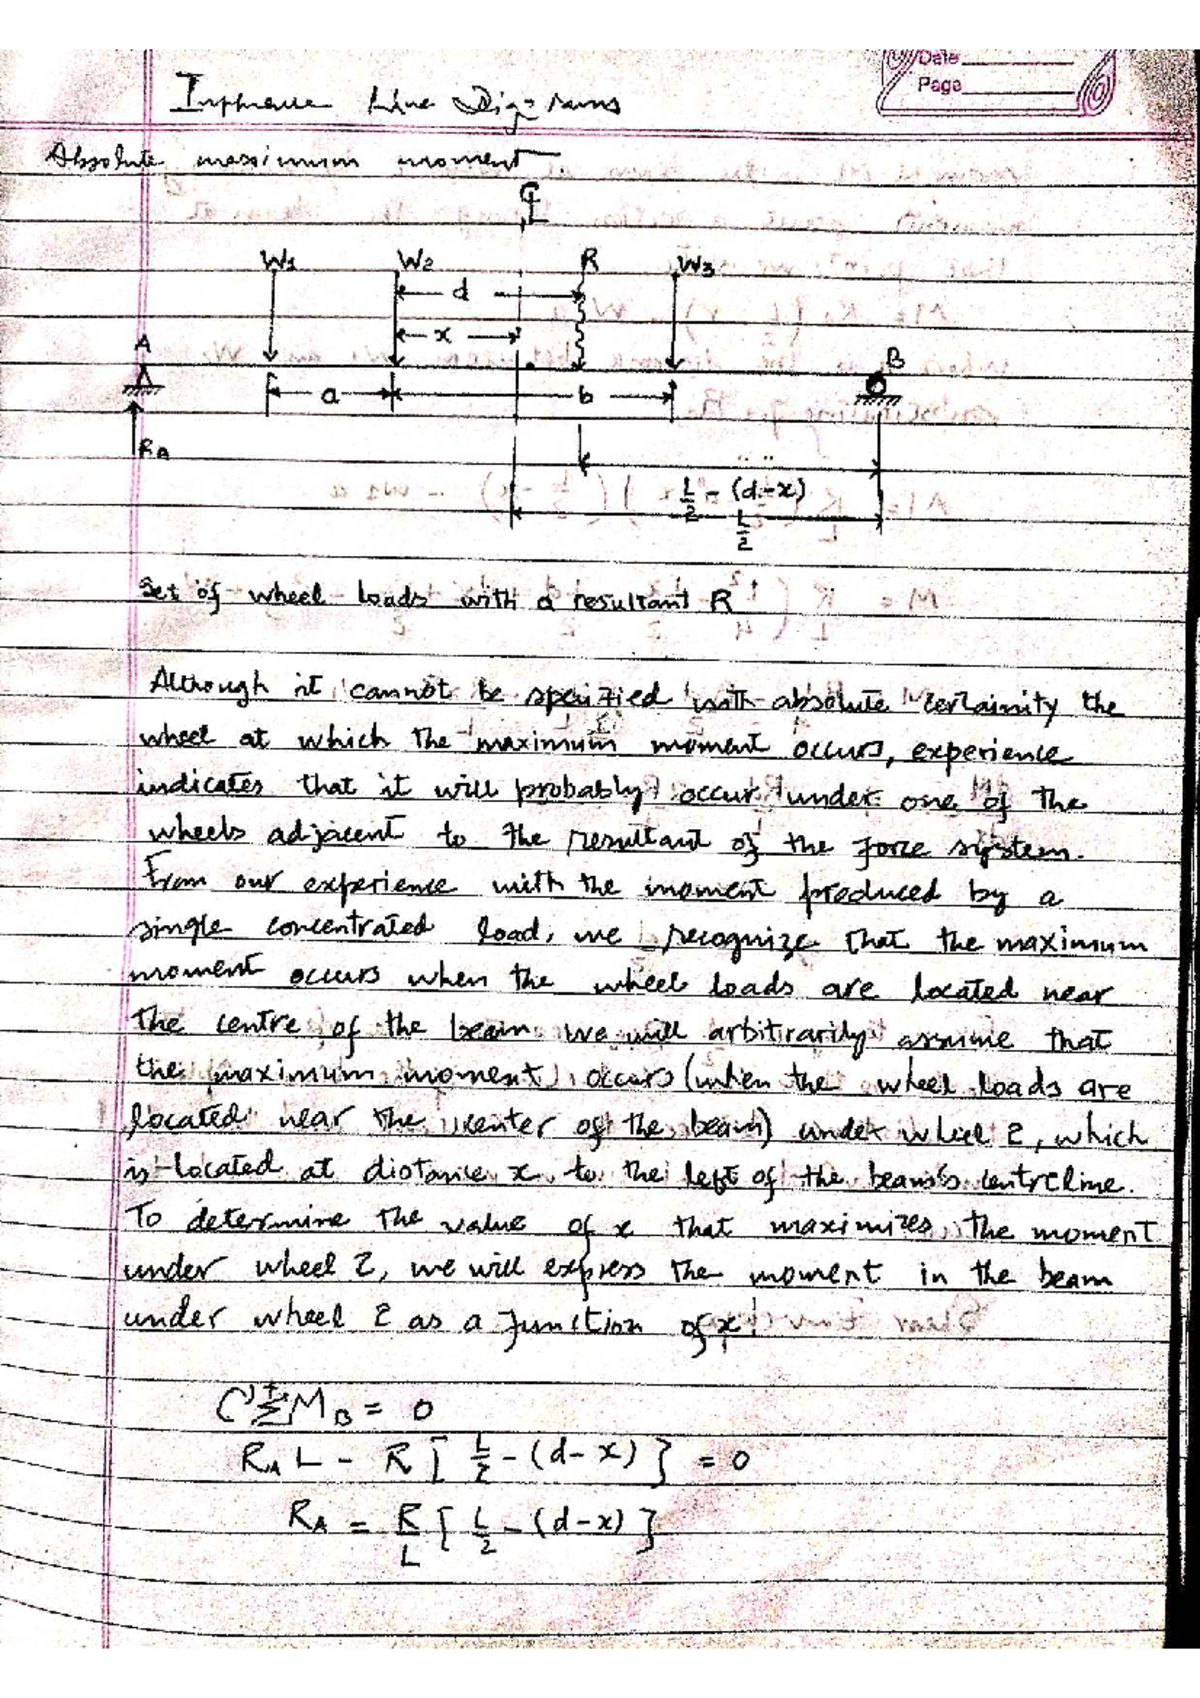 Date
Page
Influence Line Diagrams
Absolute maximum moment
C
L
W1 W2 R W3
d
x
A B
a b
RA
L/2 - (d-x)
L/2
Set of wheel loads with a resultant R
Although it cannot be specified with absolute certainity the
wheel at which the maximum moment occurs, experience
indicates that it will probably occur under one of the
wheels adjacent to the resultant of the force system.
From our experience with the moment produced by a
single concentrated load, we recognize that the maximum
moment occurs when the wheel loads are located near
the centre of the beam. We will arbitrarily assume that
the maximum moment occurs (when the wheel loads are
located near the center of the beam) under wheel 2, which
is located at distance x to the left of the beam's centreline.
To determine the value of x that maximizes the moment
under wheel 2, we will express the moment in the beam
under wheel 2 as a function of x.
+ΣMB = 0
RA L - R [ L/2 - (d-x) ] = 0
RA = R/L [ L/2 - (d-x) ]